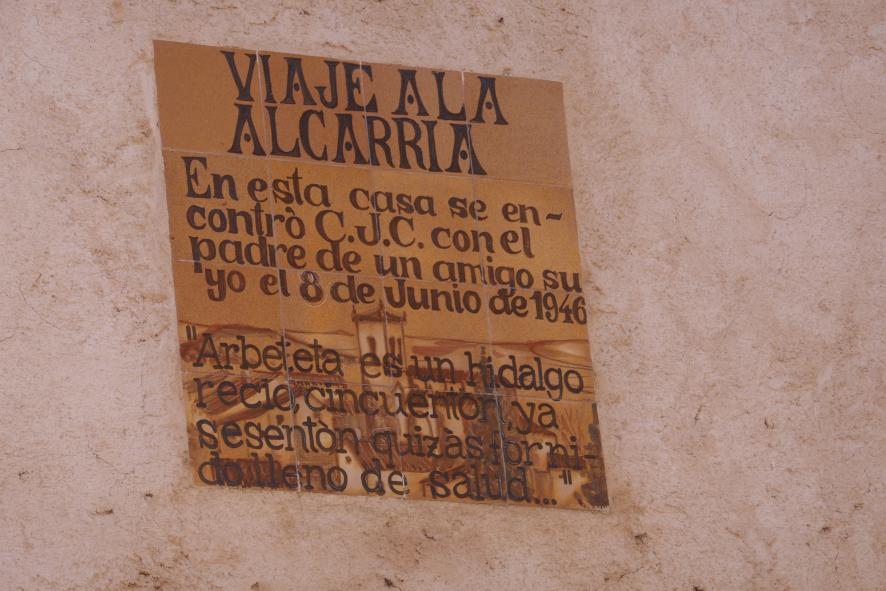 VIAJE A LA
ALCARRIA
En esta casa se en-
contrò C.J.C. con el
padre de un amigo su
'yo el 8 de Junio de 1946
"Arbeteta es un hidalgo
recio, cincuentòn, ya
sesentòn quizàs forni-
do, lleno de salud..."